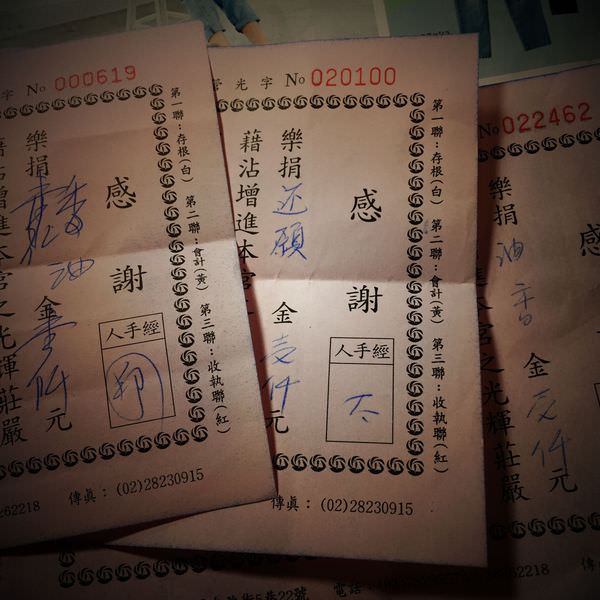 字 No 000619
第一聯：存根(白) 第二聯：會計(黃) 第三聯：收執聯(紅)
感謝
經手人
樂捐 油香 金壹仟元
藉沾增進本宮之光輝莊嚴
62218 傳眞：(02)28230915
管光字 No 020100
第一聯：存根(白) 第二聯：會計(黃) 第三聯：收執聯(紅)
感謝
經手人
太
樂捐 还願 金壹仟
藉沾增進本宮之
傳眞：(02)28230915
No 022462
感
樂捐 油香 金 仟元
藉沾增進本宮之光輝莊嚴
街5巷22號 電話：
62218 傳眞：(02)28230915